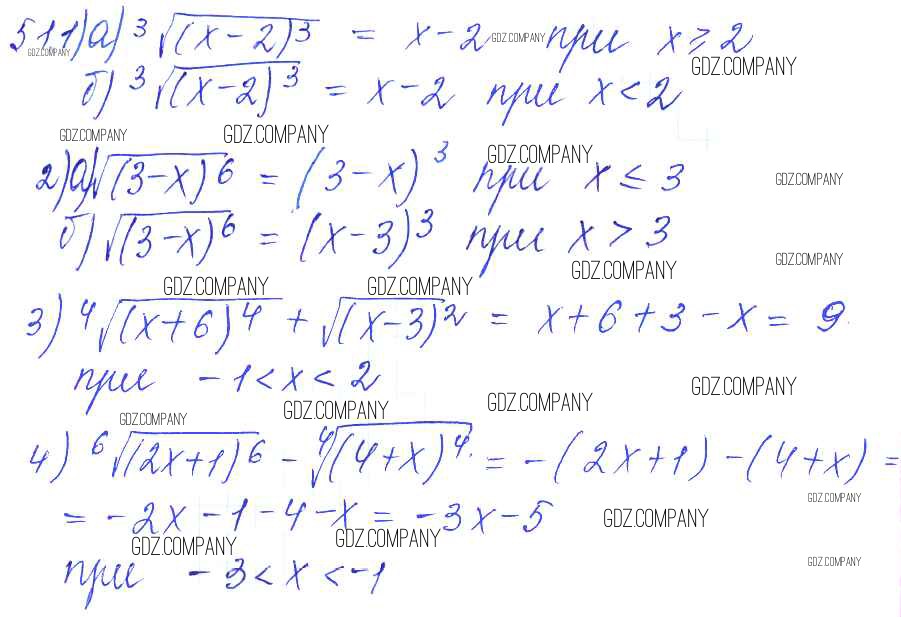 511) а) ³√(x-2)³ = x-2 при x ≥ 2
GDZ.COMPANY GDZ.COMPANY GDZ.COMPANY
б) ³√(x-2)³ = x-2 при x < 2
GDZ.COMPANY GDZ.COMPANY GDZ.COMPANY
2) а) √(3-x)⁶ = (3-x)³ при x ≤ 3
GDZ.COMPANY
б) √(3-x)⁶ = (x-3)³ при x > 3
GDZ.COMPANY GDZ.COMPANY
GDZ.COMPANY GDZ.COMPANY
3) ⁴√(x+6)⁴ + √(x-3)² = x+6+3-x = 9.
при -1 < x < 2
GDZ.COMPANY GDZ.COMPANY GDZ.COMPANY GDZ.COMPANY
4) ⁶√(2x+1)⁶ - ⁴√(4+x)⁴ = -(2x+1) - (4+x) =
GDZ.COMPANY
= -2x-1-4-x = -3x-5
GDZ.COMPANY
GDZ.COMPANY GDZ.COMPANY
при -3 < x < -1
GDZ.COMPANY